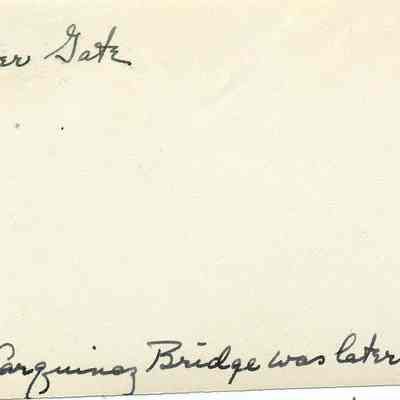 er Gate
Carquinez Bridge was later